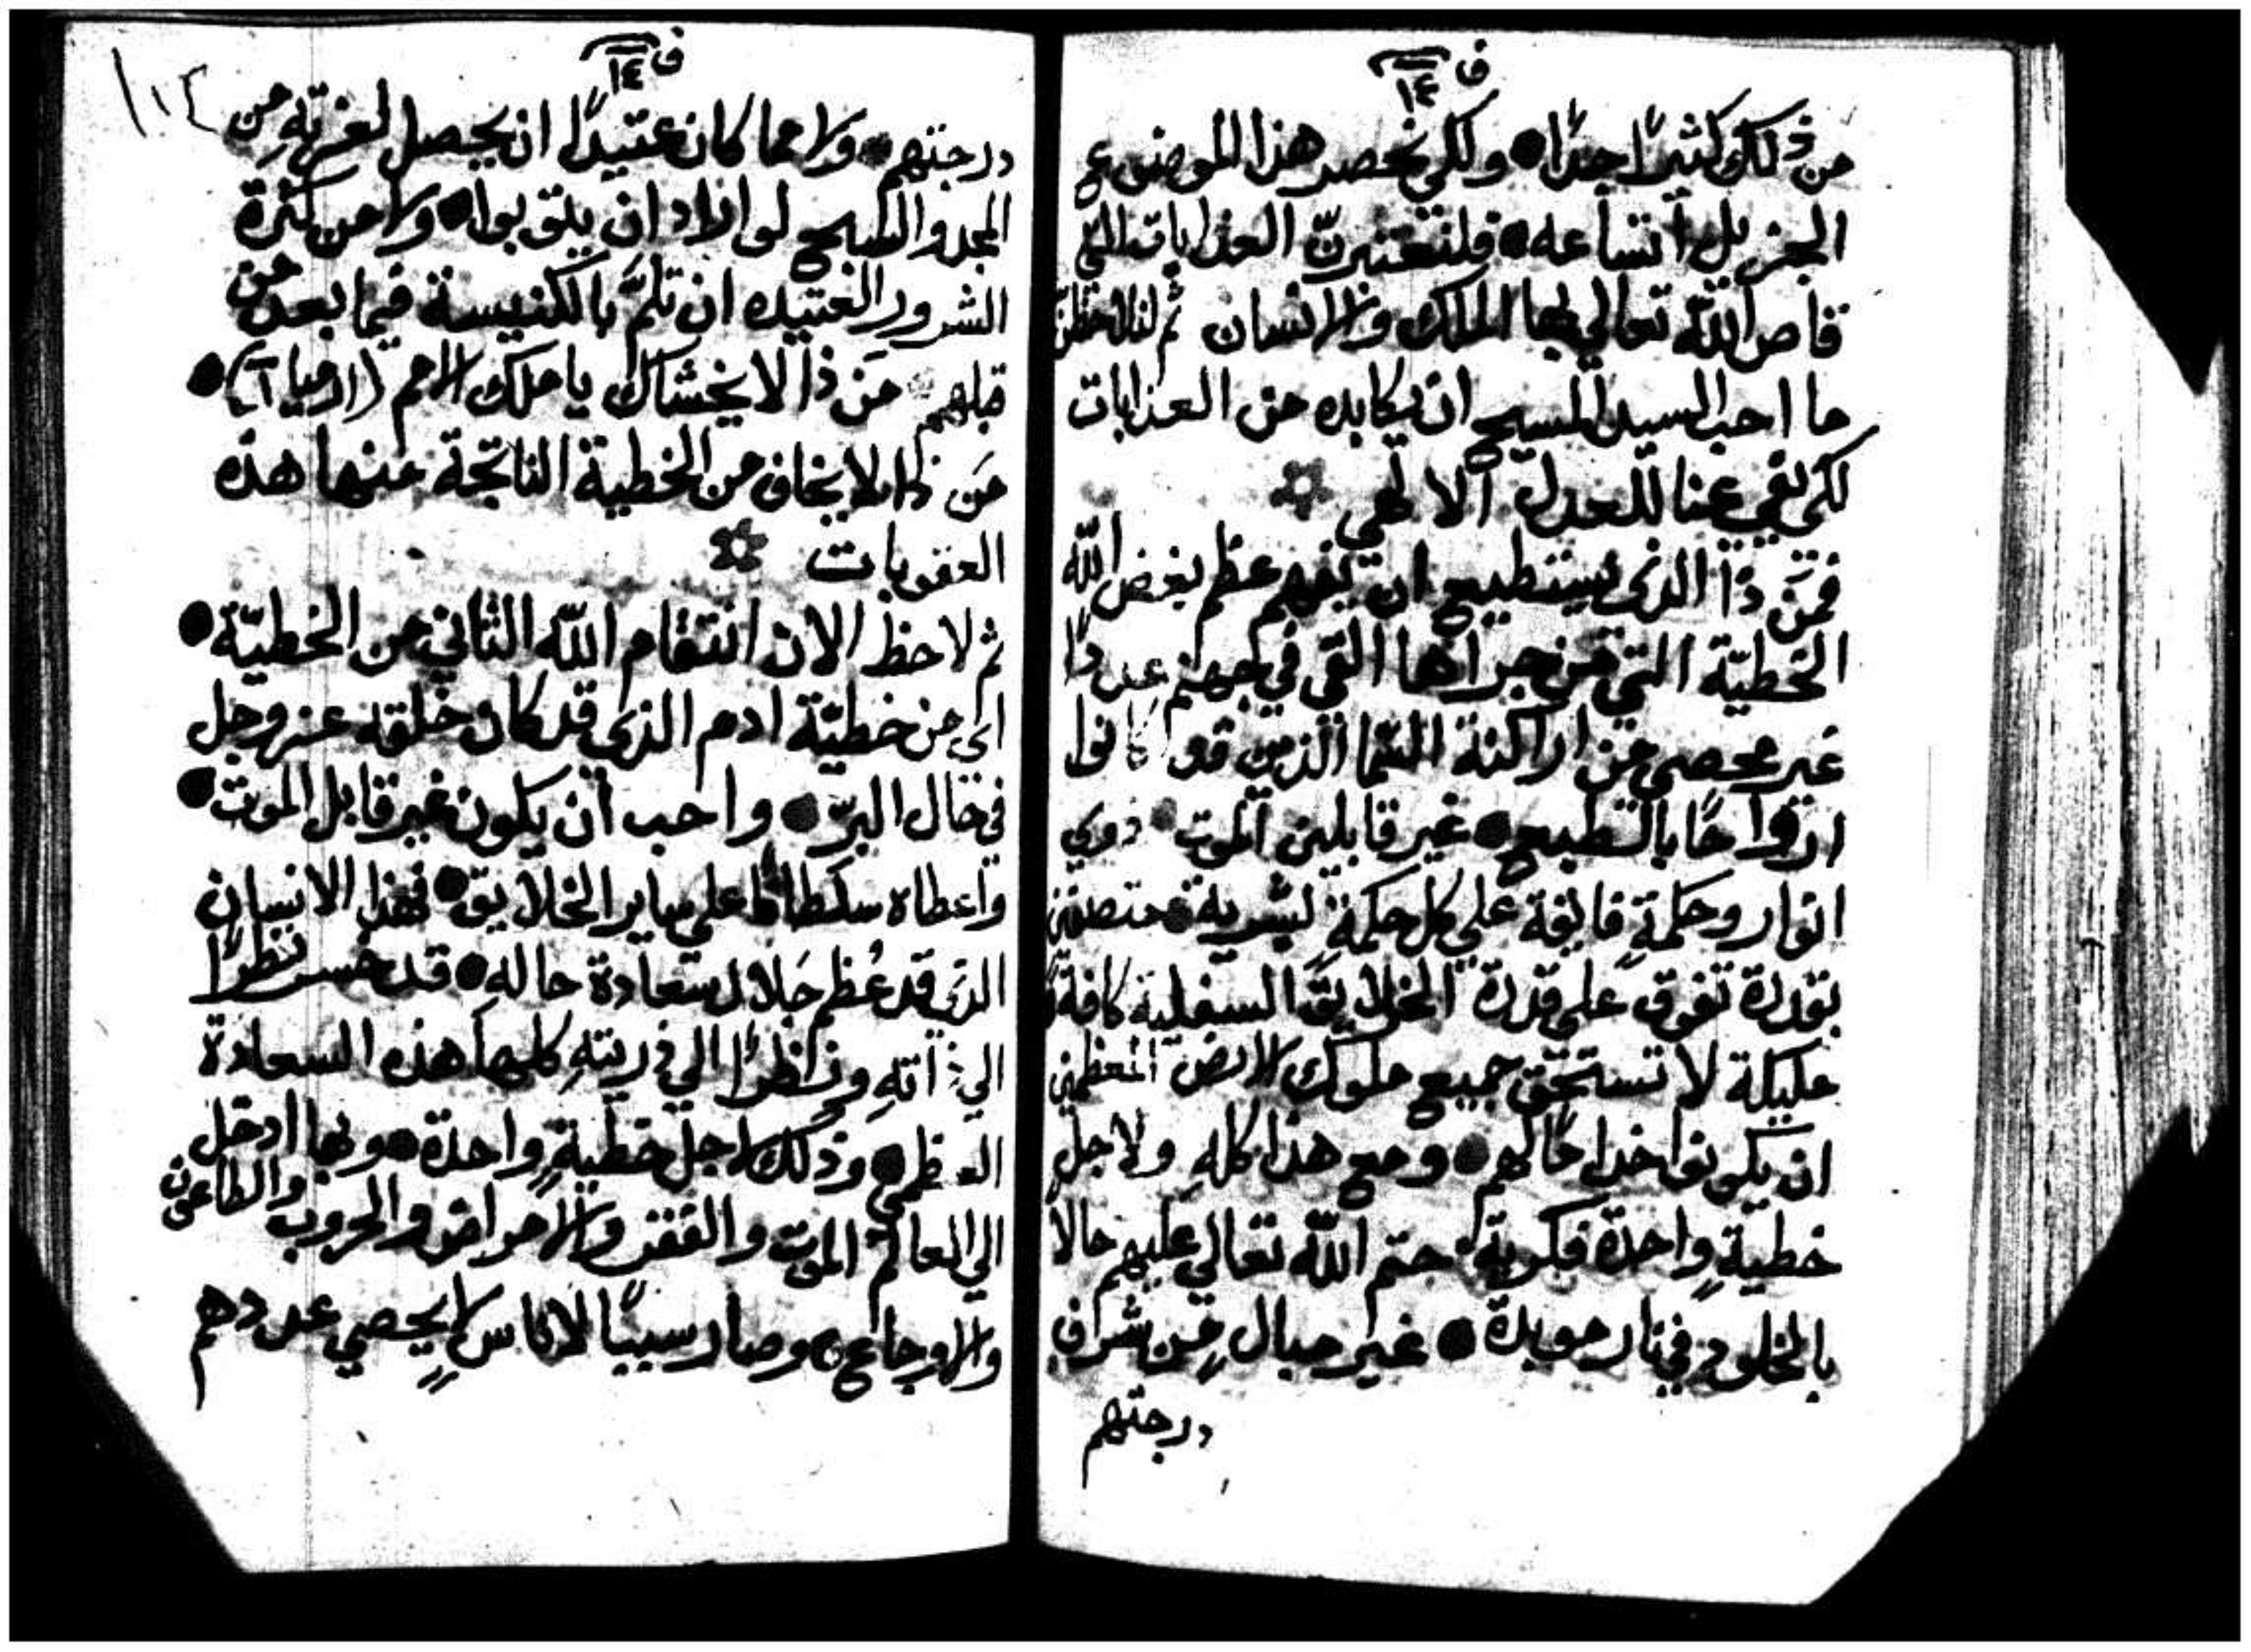 ف ١٤
من ذلك كثيرًا جدًا • ولكي نحصر هذا الموضوع
الجزيل اتساعه • فلنعتبرنّ العذابات التي
قاص الله تعالي بها الملاك والانسان ثم لنلاحظنّ
ما احب السيد المسيح ان يكابده من العذابات
لكي يفي عنا للعدل الالهي
فمَن ذا الذي يستطيع ان يفهم عظم بغض الله
الخطيّة التي من جراها القي في جهنم عددًا
غير محصي من اراكنة السما الذين قد كانوا
ارواحًا بالطبع • غير قابلين الموت • ذوي
انوار وحكمةٍ فايقة علي كل حكمةٍ بشرية • متصفين
بقدرة تفوق علي قدرة الخلايق السفلية كافةً
مليكة لا تستحق جميع ملوك الارض المعظمين
ان يكونوا خدامًا لهم • ومع هذا كلهِ ولاجل
خطيّةٍ واحدة فكرية حتم الله تعالي عليهم حالًا
بالخلود في نار موبدة • غير مبالٍ من شرف
درجتهم
ف ١٤
١١٣
درجتهم • ولا مما كان عتيدًا ان يحصل لعزتهِ من
المجد والتسبيح لو اراد ان يتوبوا • ولا من كثرة
الشرور العتيده ان تلمَّ بالكنيسة فيما بعد من
قبلهم مَن ذا لا يخشاك يا ملك الامم (ارميا ١٠) •
مَن ذا لا يخاف من الخطية الناتجة عنها هذه
العقوبات
ثم لاحظ الان انتقام الله الثاني من الخطيّة •
اي من خطيّة ادم الذي قد كان خلقه عز وجل
في حال البرّ • واحب ان يكون غير قابل الموت •
واعطاه سلطانًا علي ساير الخلايق • فهذا الانسان
الذي قد عُظم جَلال سعادة حاله • قد خسر نظرًا
الي ذاتهِ ونظرًا الي ذريتهِ كلها هذه السعادة
العظمي • وذلك لاجل خطيةٍ واحدة • وبها ادخل
الي العالم الموت والفقر والامراض والحروب والطاعون
والاوجاع • وصار سببًا لاناسٍ لا يحصي عددهم